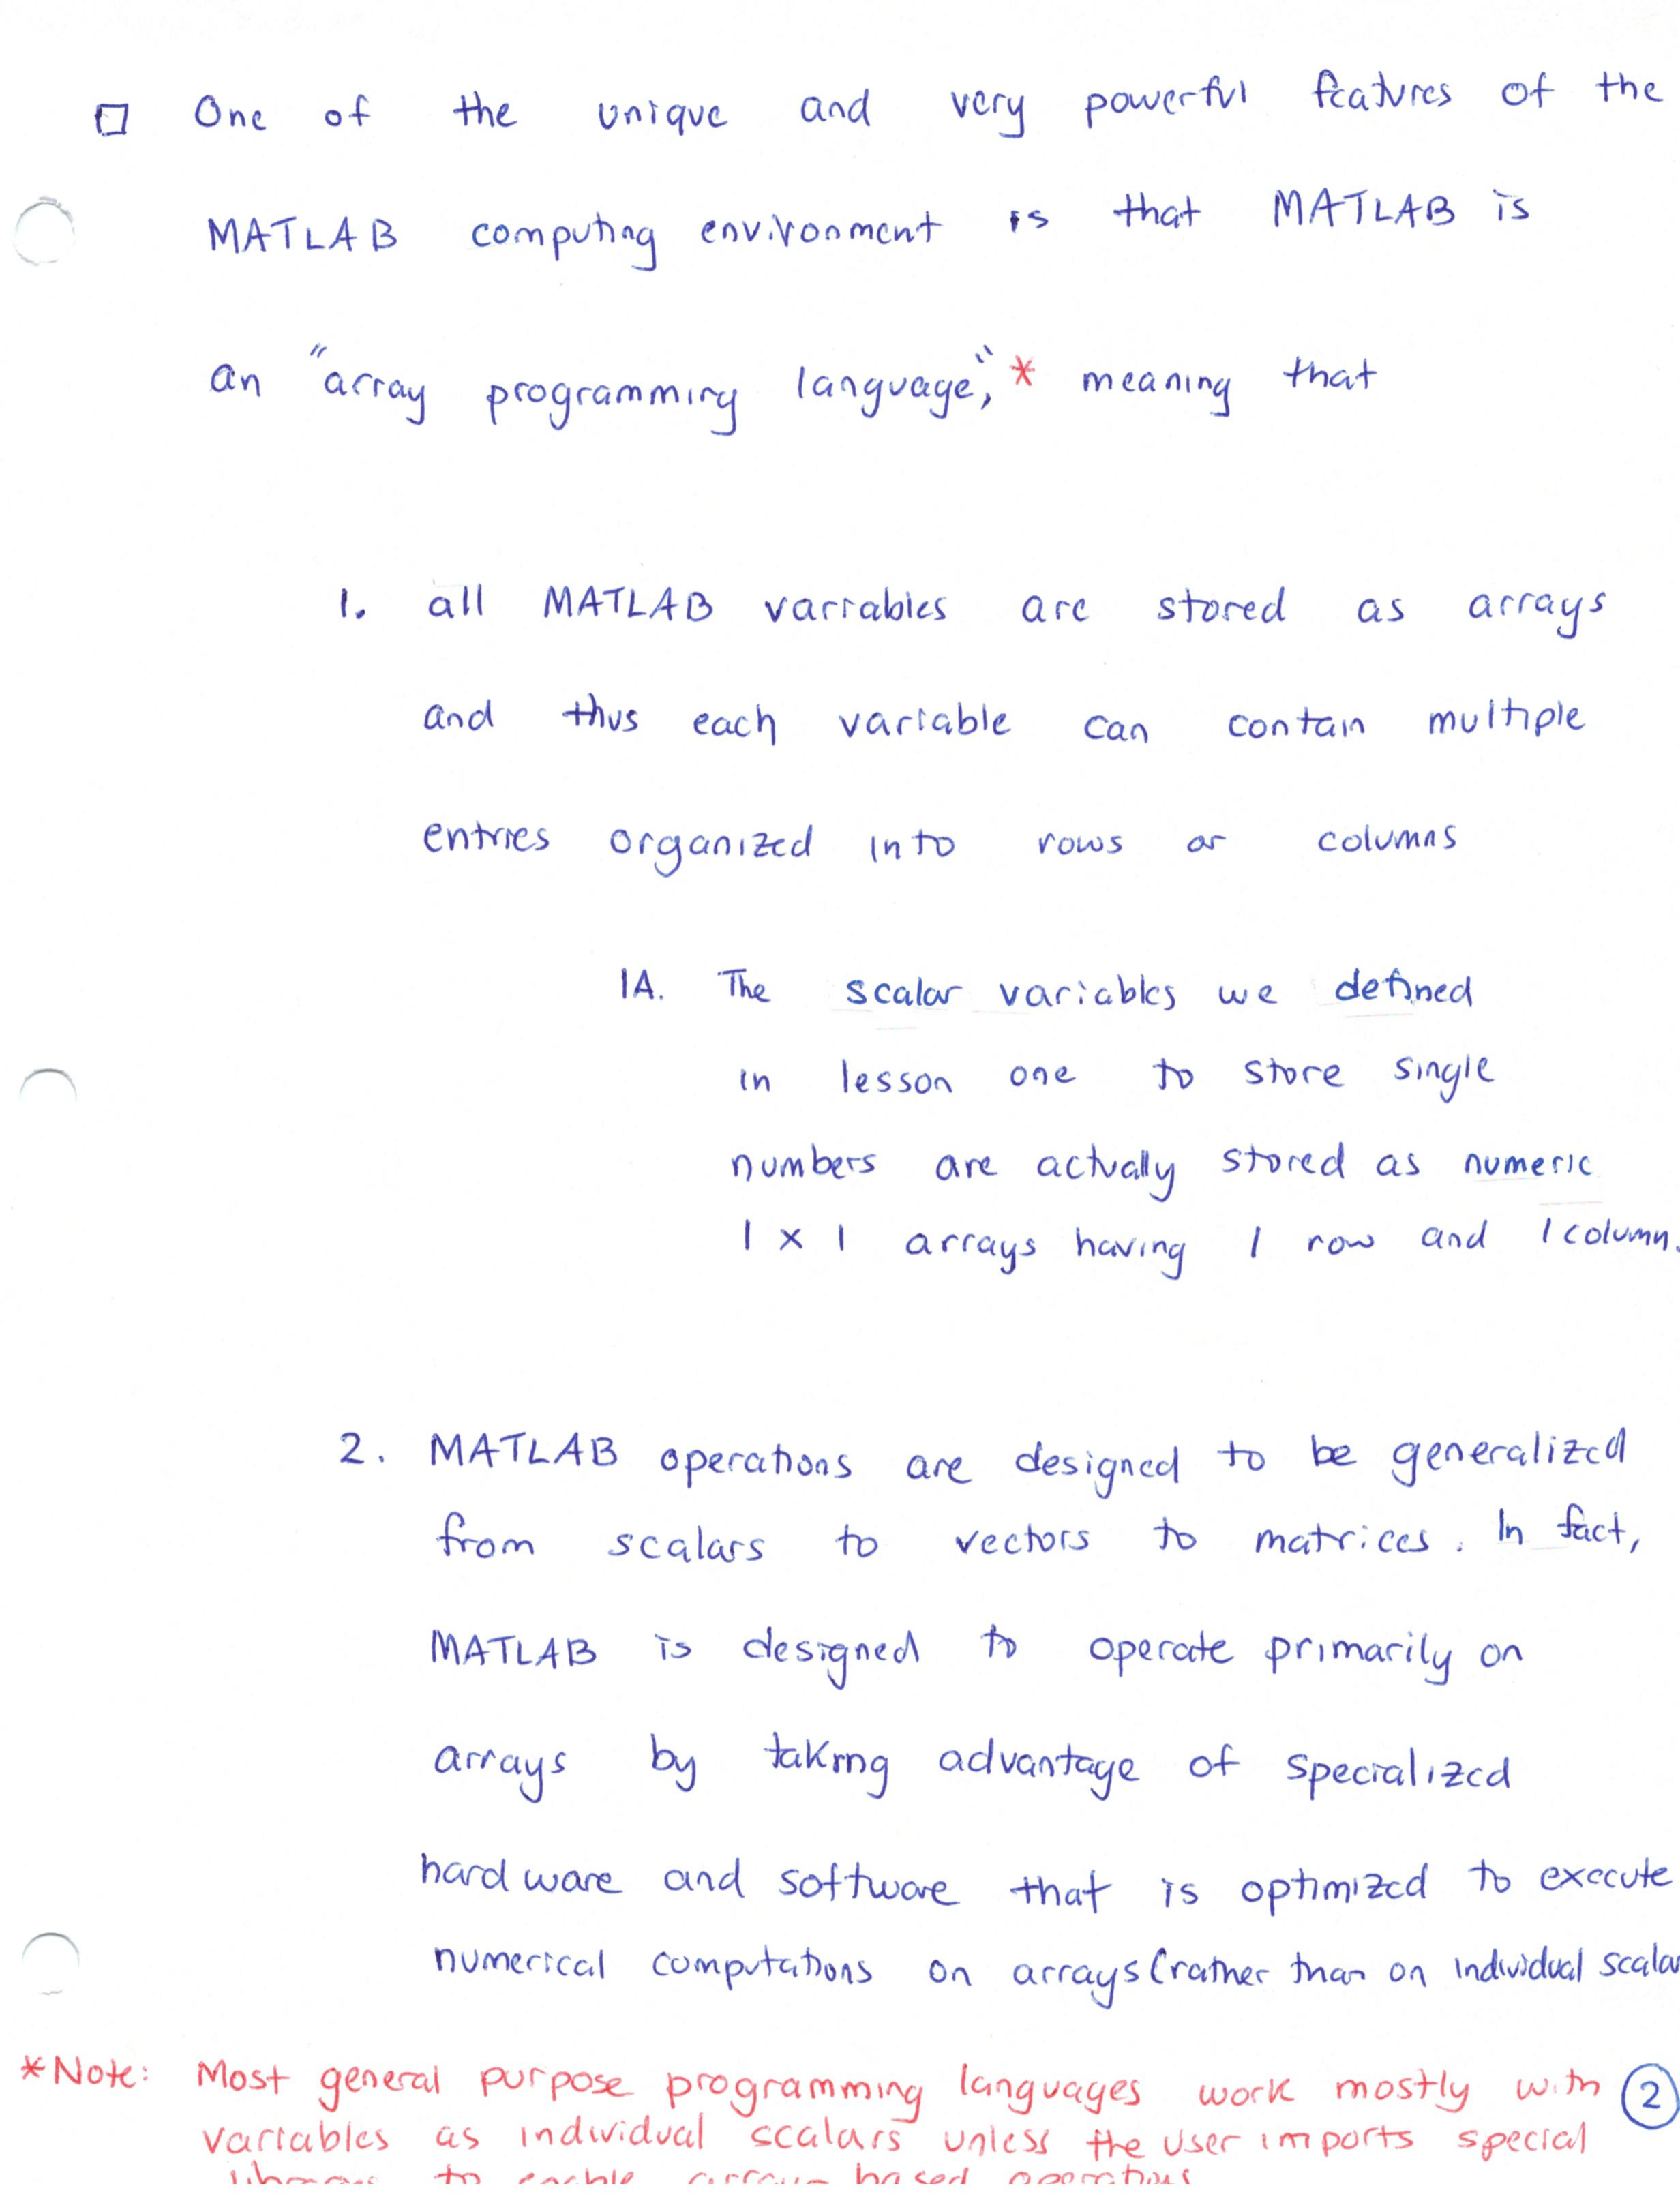 □ One of the unique and very powerful features of the
MATLAB computing environment is that MATLAB is
an "array programming language,"* meaning that
1. all MATLAB variables are stored as arrays
and thus each variable can contain multiple
entries organized into rows or columns
1A. The scalar variables we defined
in lesson one to store single
numbers are actually stored as numeric
1 x 1 arrays having 1 row and 1 column.
2. MATLAB operations are designed to be generalized
from scalars to vectors to matrices. In fact,
MATLAB is designed to operate primarily on
arrays by taking advantage of specialized
hardware and software that is optimized to execute
numerical computations on arrays (rather than on individual scalar
*Note: Most general purpose programming languages work mostly with 2
variables as individual scalars unless the user imports special
to enable array based operations